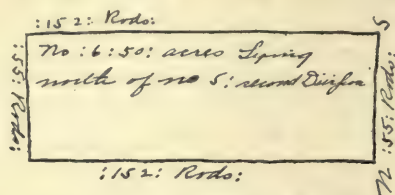 :152: Rods:
S
:55: Rods:
No:6:50: acres Lying
north of no 5: second Division
N :55: Rods:
:152: Rods: